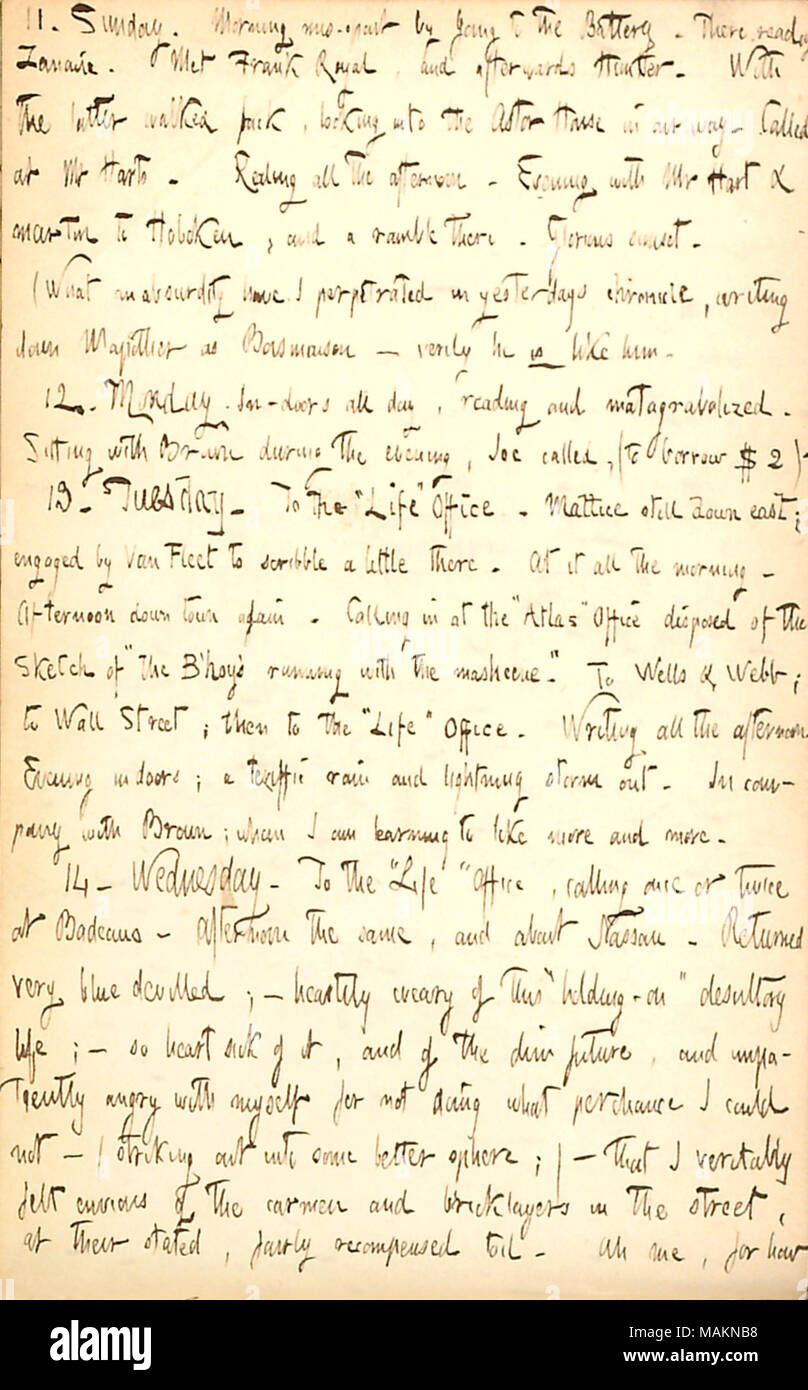 11. Sunday. Morning mis-spent by going to the Battery. There reading
Zanarie. Met Frank Royal, and afterwards Hunter. With
the latter walked back, looking into the Astor House in our way. Called
at Mr Harts. Reading all the afternoon. Evening with Mr Hart &
Martin to Hoboken, and a ramble there. Glorious sunset.
(What an absurdity have I perpetrated in yesterdays chronicle, writing
down Mapother as Boismaison — verily he is like him.
12. Monday. In-doors all day, reading and matagrabolized.
Sitting with Brown during the evening, Joe called, (to borrow $ 2)
13. Tuesday. To the "Life" Office. Mattice still down east;
engaged by Van Fleet to scribble a little there. At it all the morning.
Afternoon down town again. Calling in at the "Atlas" Office disposed of the
Sketch of "the B'hoys running with the masheene." To Wells & Webb;
to Wall Street; then to the "Life" Office. Writing all the afternoon.
Evening indoors; a teriffic rain and lightning storm out. In com-
pany with Brown; whom I am learning to like more and more.
14. Wednesday. To the "Life" Office, calling once or twice
at Badeaus. Afternoon the same, and about Nassau. Returned
very blue devilled; — heartily weary of this "holding-on" desultory
life; — so heart sick of it, and of the dim future, and impa-
tiently angry with myself for not doing what perchance I could
not — (striking out into some better sphere;) — that I veritably
felt envious of the carmen and bricklayers in the street,
at their stated, fairly recompensed toil. Ah me, for how
alamy
Image ID: MAKNB8
www.alamy.com